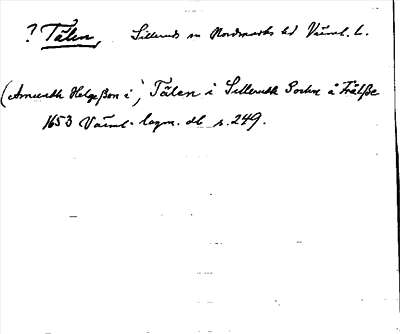 ? Tålen, Sillerud sn Nordmarks hd Värml. L.
(Amundh Helgeßon i), Tålen i Sillerudh Sochn å Frälße
1653 Värml. lagm. db s. 249.